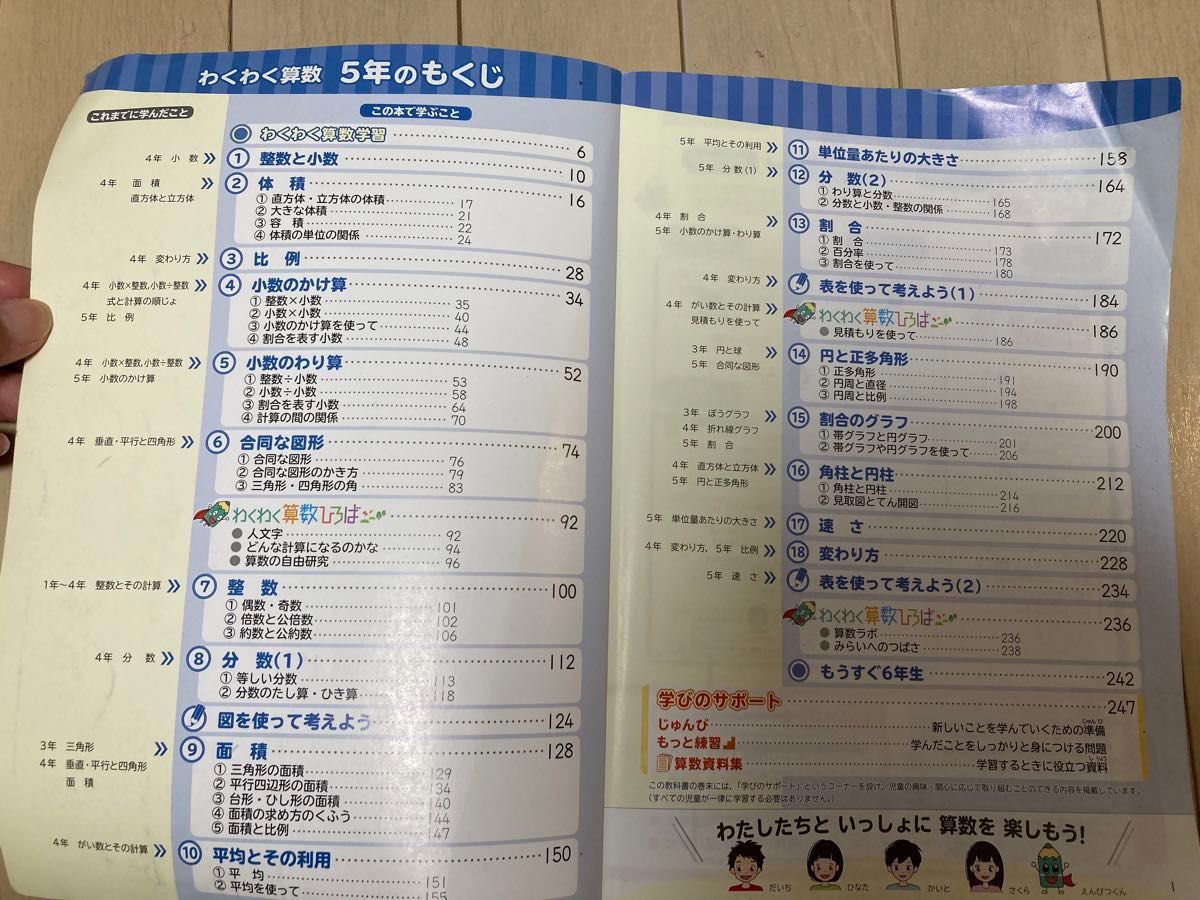 わくわく算数 5年のもくじ
これまでに学んだこと
この本で学ぶこと
わくわく算数学習 6
4年 小数 ① 整数と小数 10
4年 面積 ② 体積 16
直方体と立方体
① 直方体・立方体の体積 17
② 大きな体積 21
③ 容積 22
④ 体積の単位の関係 24
4年 変わり方 ③ 比例 28
4年 小数×整数,小数÷整数 ④ 小数のかけ算 34
式と計算の順じょ
5年 比例
① 整数×小数 35
② 小数×小数 40
③ 小数のかけ算を使って 44
④ 割合を表す小数 48
4年 小数×整数,小数÷整数 ⑤ 小数のわり算 52
5年 小数のかけ算
① 整数÷小数 53
② 小数÷小数 58
③ 割合を表す小数 64
④ 計算の間の関係 70
4年 垂直・平行と四角形 ⑥ 合同な図形 74
① 合同な図形 76
② 合同な図形のかき方 79
③ 三角形・四角形の角 83
わくわく算数ひろば 92
● 人文字 92
● どんな計算になるのかな 94
● 算数の自由研究 96
1年〜4年 整数とその計算 ⑦ 整数 100
① 偶数・奇数 101
② 倍数と公倍数 102
③ 約数と公約数 106
4年 分数 ⑧ 分数(1) 112
① 等しい分数 113
② 分数のたし算・ひき算 118
図を使って考えよう 124
3年 三角形 ⑨ 面積 128
4年 垂直・平行と四角形
面積
① 三角形の面積 129
② 平行四辺形の面積 134
③ 台形・ひし形の面積 140
④ 面積の求め方のくふう 144
⑤ 面積と比例 147
4年 がい数とその計算 ⑩ 平均とその利用 150
① 平均 151
② 平均を使って 155
5年 平均とその利用 ⑪ 単位量あたりの大きさ 158
5年 分数(1) ⑫ 分数(2) 164
① わり算と分数 165
② 分数と小数・整数の関係 168
4年 割合 ⑬ 割合 172
5年 小数のかけ算・わり算
① 割合 173
② 百分率 178
③ 割合を使って 180
4年 変わり方 表を使って考えよう(1) 184
4年 がい数とその計算
見積もりを使って
わくわく算数ひろば 186
● 見積もりを使って 186
3年 円と球 ⑭ 円と正多角形 190
5年 合同な図形
① 正多角形 191
② 円周と直径 194
③ 円周と比例 198
3年 ぼうグラフ ⑮ 割合のグラフ 200
4年 折れ線グラフ
5年 割合
① 帯グラフと円グラフ 201
② 帯グラフや円グラフを使って 206
4年 直方体と立方体 ⑯ 角柱と円柱 212
5年 円と正多角形
① 角柱と円柱 214
② 見取図とてん開図 216
5年 単位量あたりの大きさ ⑰ 速さ 220
4年 変わり方, 5年 比例 ⑱ 変わり方 228
5年 速さ 表を使って考えよう(2) 234
わくわく算数ひろば 236
● 算数ラボ 236
● みらいへのつばさ 238
もうすぐ6年生 242
学びのサポート 247
じゅんび 新しいことを学んでいくための準備
じゅんび
もっと練習 学んだことをしっかりと身につける問題
算数資料集 学習するときに役立つ資料
しりょう
この教科書の巻末には、「学びのサポート」というコーナーを設け、児童の興味・関心に応じて取り組むことのできる内容を掲載しています。
(すべての児童が一律に学習する必要はありません。)
わたしたちと いっしょに 算数を 楽しもう!
だいち ひなた かいと さくら えんぴつくん
1